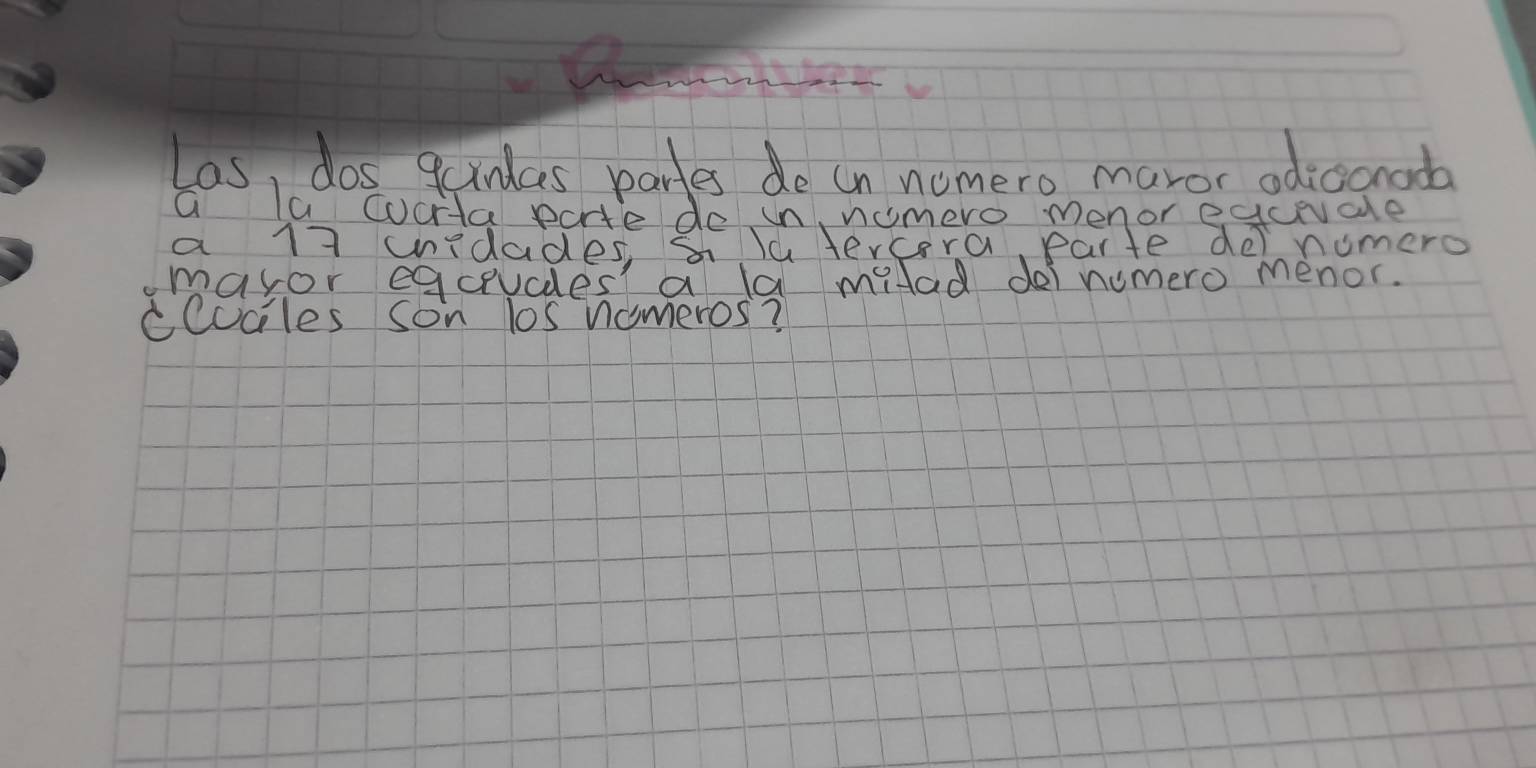 Resolver
Las, dos quintas partes de un numero mayor adicionada
a la cuarta parte de un numero menor equivale
a 17 unidades, si la tercera parte del numero
mayor equivales a la mitad del numero menor.
¿Cuáles son los numeros?